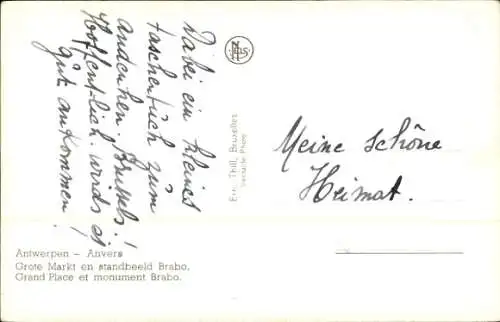 Dabei ein kleines
taschentuch zum
andenken. Brüssels!
Hoffentlich wirds es
gut ankommen!
Meine schöne
Heimat.
NELS
Ern. Thill, Bruxelles
Antwerpen – Anvers
Grote Markt en standbeeld Brabo.
Grand Place et monument Brabo.